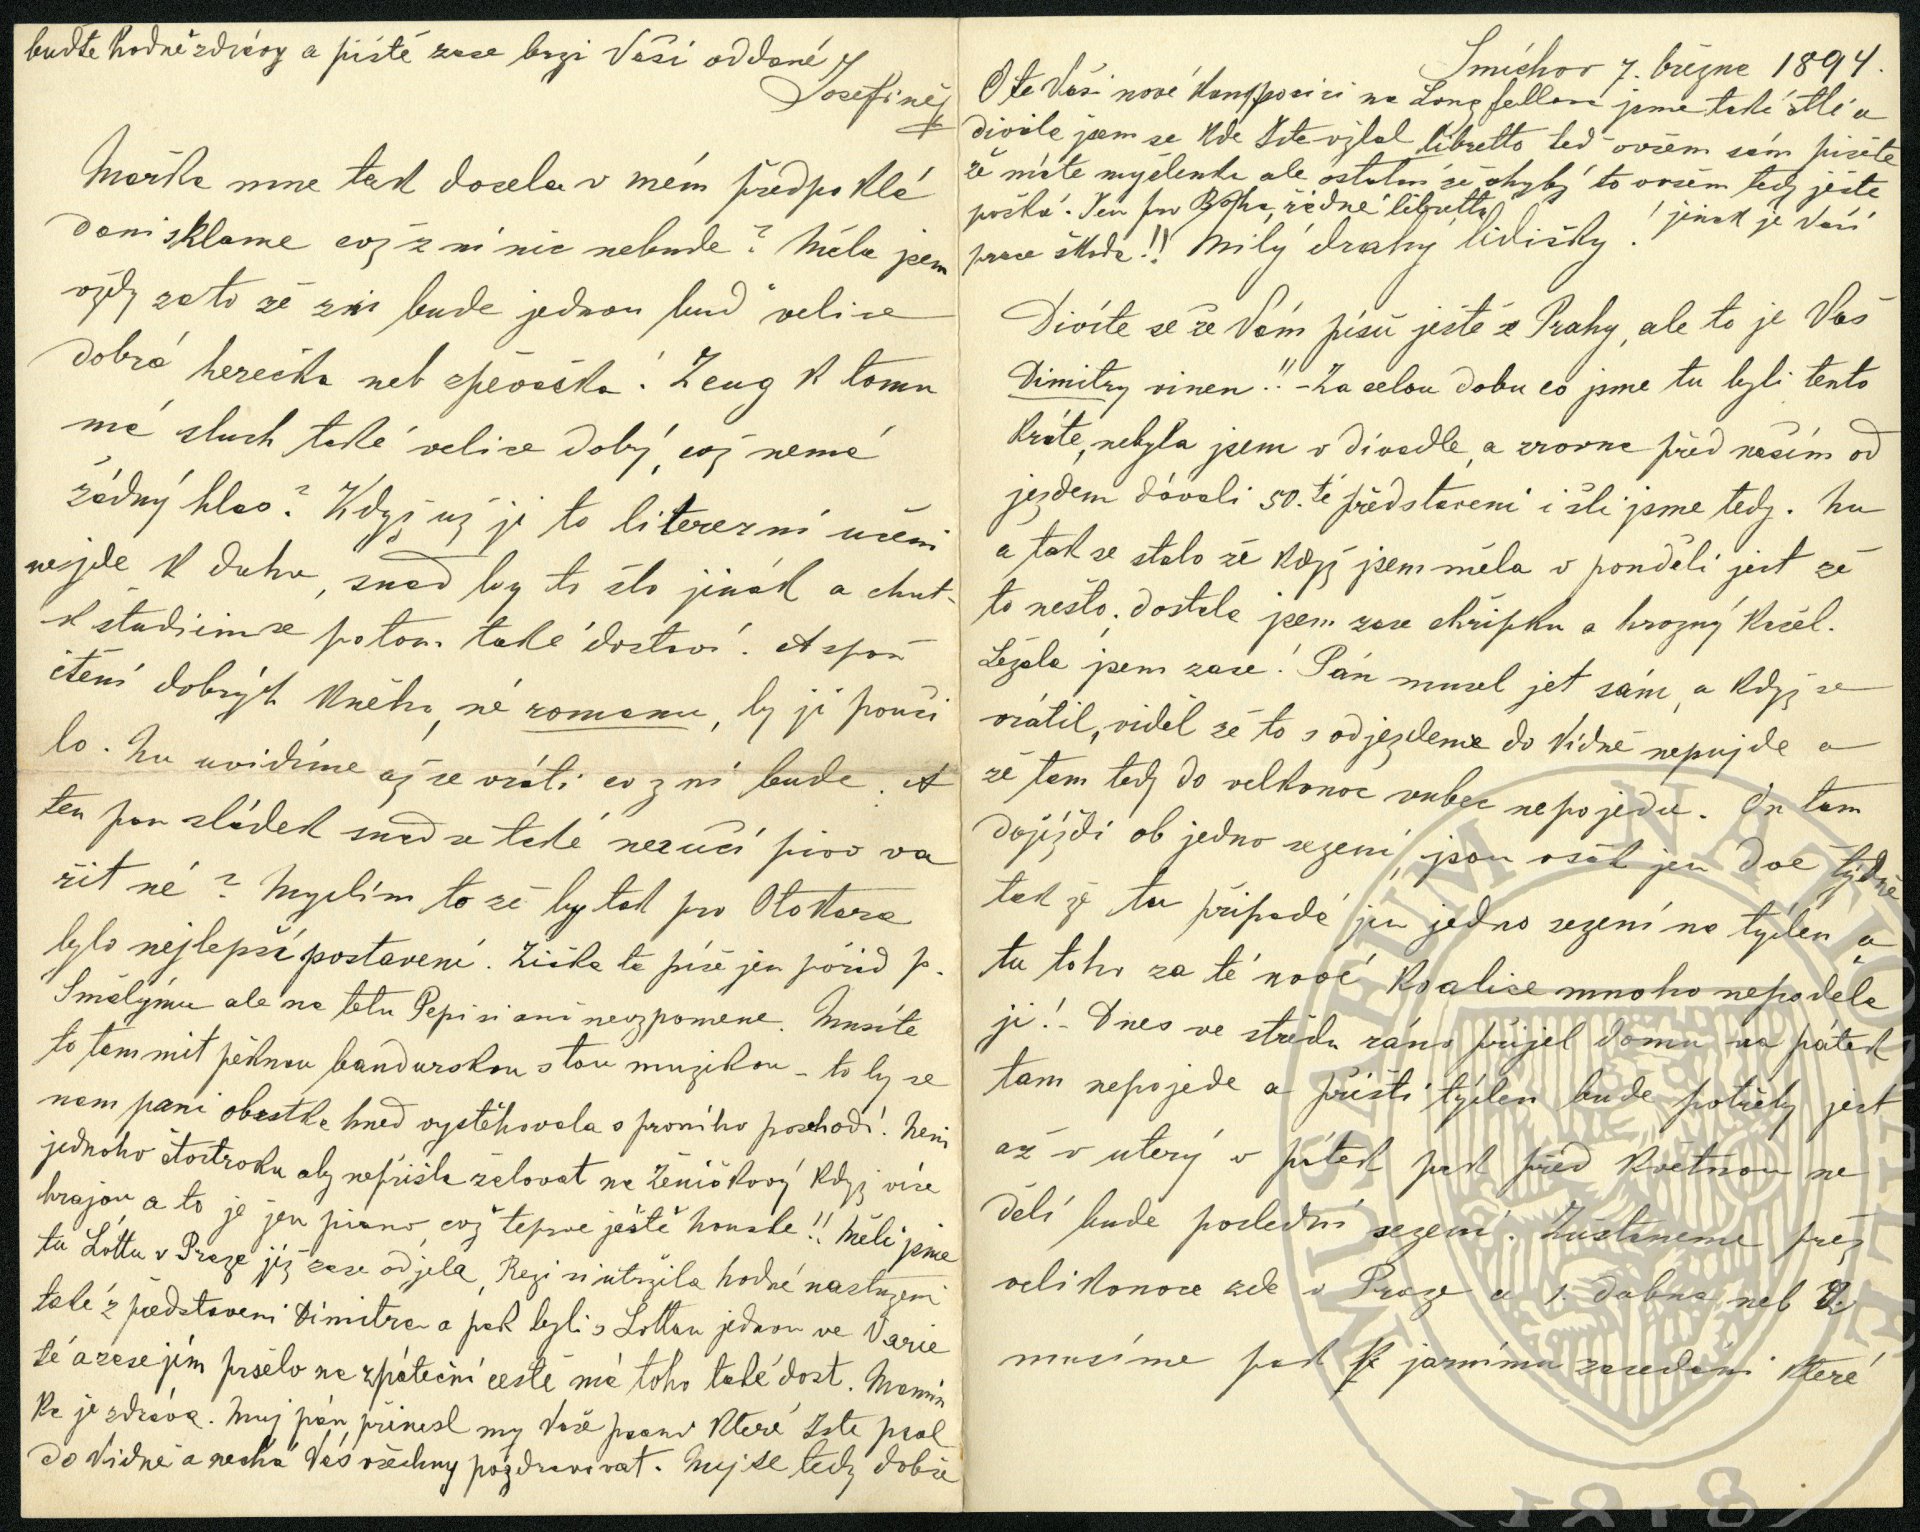 Smíchov 7. března 1894.
O té Vaší nové komposici na Longfellova jsme také četli a
divila jsem se kde jste vzal libretto teď ovšem sám píšete
že máte myšlenku ale ostatní že chybý to ovšem tedy ještě
počká. Jen pro Boha, žádné libretto
! jinak je Vaší
práce škoda!!
Milý drahý lidičky!
Divíte se že Vám píšu ještě z Prahy, ale to je Váš
Dimitry vinen!! – Za celou dobu co jsme tu byli tento
kráte, nebyla jsem v divadle, a zrovna před naším od
jezdem dávali 50.té představení i šli jsme tedy. Nu
a tak se stalo že když jsem měla v pondělí jet že
to nešlo, dostala jsem zase chřipku a hrozný kašel.
Ležela jsem zase! Pán musel jet sám, a když se
vrátil, viděl že to s odjezdeme do Vídně nepujde a
že tam tedy do velkonoc vubec nepojedu. On tam
dojíždí ob jedno sezení, jsou však jen dvě týdně
tak že tu připadá jen jedno sezení na týden a
tu toho za té nové koalice mnoho nepoděla
jí! – Dnes ve středu ráno přijel domu na pátek
tam nepojede a příští týden bude potřeby jet
až v uterý v pátek pak před květnou ne
dělí bude poslední sezení. Zustaneme přes
velikonoce zde v Praze a 1. dubna neb 2.
musíme pak k jarnímu zasedání které
Mařka mne tak docela v mém předpoklá
daní sklame což z ní nic nebude? Měla jsem
vždy za to že z ní bude jednou buď velice
dobrá herečka neb zpěvačka! Zeug k tomu
má sluch také velice dobrý, což nemá
žádný hlas? Když už jí to litererní učení
nejde k duhu, snad by to šlo jinák a chuť
k študiím se potom také dostaví. Aspoň
čtení dobrých kněh, né romanu, by jí pouči
lo. Nu uvidíme až se vrátí co z ní bude. A
ten pan sládek snad se také nezučí pivo va
řit né? Myslím to že by tak pro Otokara
bylo nejlepší postavení. Ziška ta píše jen pořád p.
Smolýmu ale na tetu Pepi si ani nevzpomene. Musíte
to tam mít pěknou bandurskou s tou muzikou – to by se
nam paní obrstka hned vystěhovala s prvního poschodí. Není
jednoho čtvrtroku aby nepřišla žalovat na Ženíškový když více
hrajou a to je jen piano, což teprve ještě housle!! Měli jsme
tu Lottu v Praze již zase odjela, Rezi si utržila hodné nastuzení
také z představení Dimitra a pak byli s Lottou jednou ve Varie
té a zase jím pršelo na zpáteční cestě má toho také dost. Mamin
ka je zdráva. Muj pán přinesl my Vaše psaní které jste psal
do Vídně a nechá Vás všechny pozdravovat. Muj se tedy dobře
buďte hodně zdrávy a pište zase brzi Vaší oddané
Josefině
MUSAEUM NATIONALE
1818